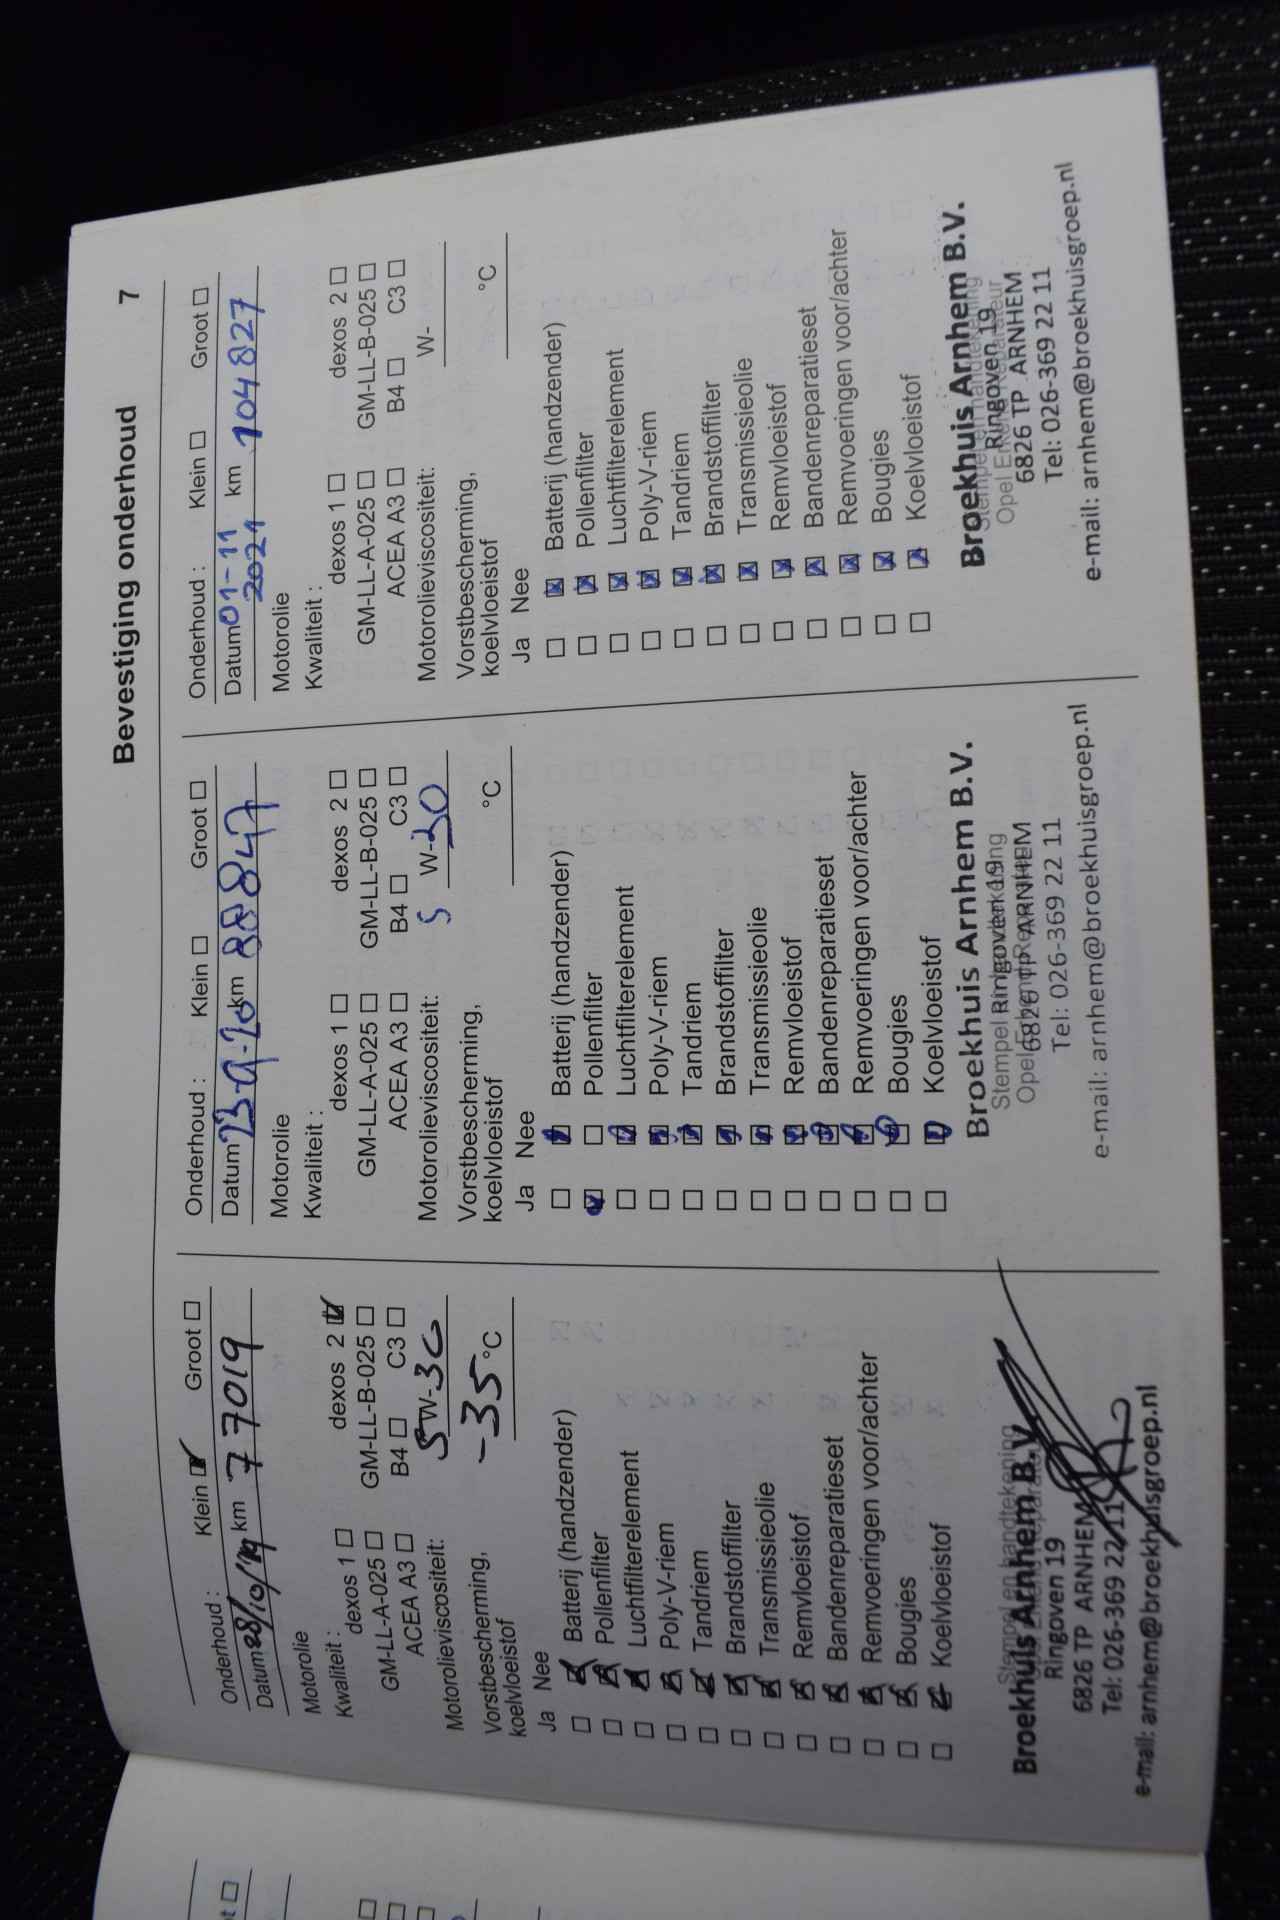 Bevestiging onderhoud 7
Onderhoud : Klein ☑ Groot ☐
Datum 28/10/'19 km 77019
Motorolie
Kwaliteit :
dexos 1 ☐ dexos 2 ☑
GM-LL-A-025 ☐ GM-LL-B-025 ☐
ACEA A3 ☐ B4 ☐ C3 ☐
Motorolieviscositeit: 5 W-30
Vorstbescherming,
koelvloeistof -35 °C
Ja Nee
☐ ☒ Batterij (handzender)
☐ ☒ Pollenfilter
☐ ☒ Luchtfilterelement
☐ ☒ Poly-V-riem
☐ ☒ Tandriem
☐ ☒ Brandstoffilter
☐ ☒ Transmissieolie
☐ ☒ Remvloeistof
☐ ☒ Bandenreparatieset
☐ ☒ Remvoeringen voor/achter
☐ ☒ Bougies
☐ ☒ Koelvloeistof
Stempel en handtekening
Broekhuis Arnhem B.V.
Ringoven 19
6826 TP ARNHEM
Tel: 026-369 22 11
e-mail: arnhem@broekhuisgroep.nl
Onderhoud : Klein ☐ Groot ☐
Datum 23-9-20 km 88847
Motorolie
Kwaliteit :
dexos 1 ☐ dexos 2 ☐
GM-LL-A-025 ☐ GM-LL-B-025 ☐
ACEA A3 ☐ B4 ☐ C3 ☐
Motorolieviscositeit: 5 W-30
Vorstbescherming,
koelvloeistof °C
Ja Nee
☐ ☒ Batterij (handzender)
☒ ☐ Pollenfilter
☐ ☒ Luchtfilterelement
☐ ☒ Poly-V-riem
☐ ☒ Tandriem
☐ ☒ Brandstoffilter
☐ ☒ Transmissieolie
☐ ☒ Remvloeistof
☐ ☒ Bandenreparatieset
☐ ☒ Remvoeringen voor/achter
☐ ☒ Bougies
☐ ☒ Koelvloeistof
Broekhuis Arnhem B.V.
Stempel en handtekening
Ringoven 19
Opel Erkend Reparateur
6826 TP ARNHEM
Tel: 026-369 22 11
e-mail: arnhem@broekhuisgroep.nl
Onderhoud : Klein ☐ Groot ☐
Datum 01-11 2021 km 104827
Motorolie
Kwaliteit :
dexos 1 ☐ dexos 2 ☐
GM-LL-A-025 ☐ GM-LL-B-025 ☐
ACEA A3 ☐ B4 ☐ C3 ☐
Motorolieviscositeit: W-
Vorstbescherming,
koelvloeistof °C
Ja Nee
☐ ☒ Batterij (handzender)
☐ ☒ Pollenfilter
☐ ☒ Luchtfilterelement
☐ ☒ Poly-V-riem
☐ ☒ Tandriem
☐ ☒ Brandstoffilter
☐ ☒ Transmissieolie
☐ ☒ Remvloeistof
☐ ☒ Bandenreparatieset
☐ ☒ Remvoeringen voor/achter
☐ ☒ Bougies
☐ ☒ Koelvloeistof
Broekhuis Arnhem B.V.
Stempel en handtekening
Ringoven 19
Opel Erkend Reparateur
6826 TP ARNHEM
Tel: 026-369 22 11
e-mail: arnhem@broekhuisgroep.nl